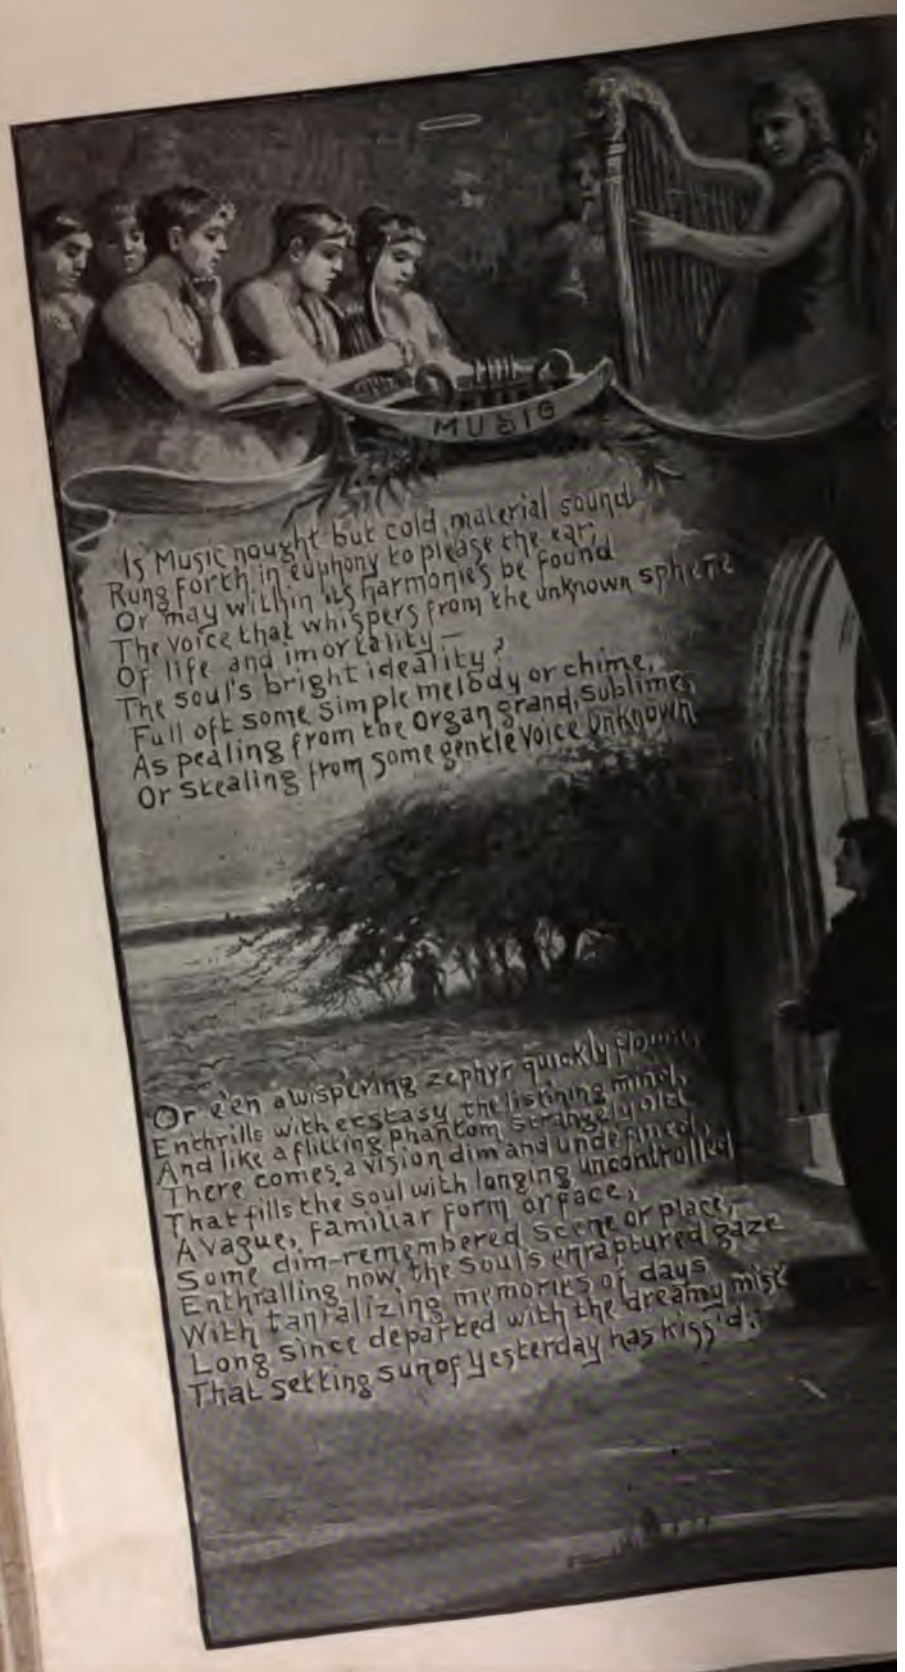 MUSIC
Is Music nought but cold, material sound
Rung forth in euphony to please the ear,
Or may within its harmonies be found
The voice that whispers from the unknown sphere
Of life and imortality—
The soul's bright ideality?
Full oft some simple melody or chime,
As pealing from the Organ grand, sublime,
Or stealing from some gentle Voice unknown
Or e'en a wispering zephyr quickly flown,
Enthrills with ecstasy the listining mind,
And like a flitting phantom strangely old
There comes a vision dim and undefined,
That fills the soul with longing uncontrolled
A vague, familiar form or face,
Some dim-remembered scene or place,—
Enthralling now the Soul's enraptured gaze
With tantalizing memories of days
Long since departed with the dreamy mist
That setting sun of yesterday has kiss'd.